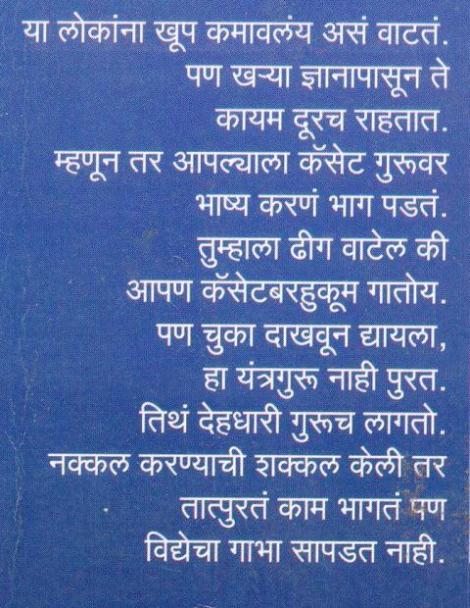 या लोकांना खूप कमावलंय असं वाटतं.
पण खऱ्या ज्ञानापासून ते
कायम दूरच राहतात.
म्हणून तर आपल्याला कॅसेट गुरूवर
भाष्य करणं भाग पडतं.
तुम्हाला ढीग वाटेल की
आपण कॅसेटबरहुकूम गातोय.
पण चुका दाखवून द्यायला,
हा यंत्रगुरू नाही पुरत.
तिथं देहधारी गुरूच लागतो.
नक्कल करण्याची शक्कल केली तर
तात्पुरतं काम भागतं पण
विद्येचा गाभा सापडत नाही.